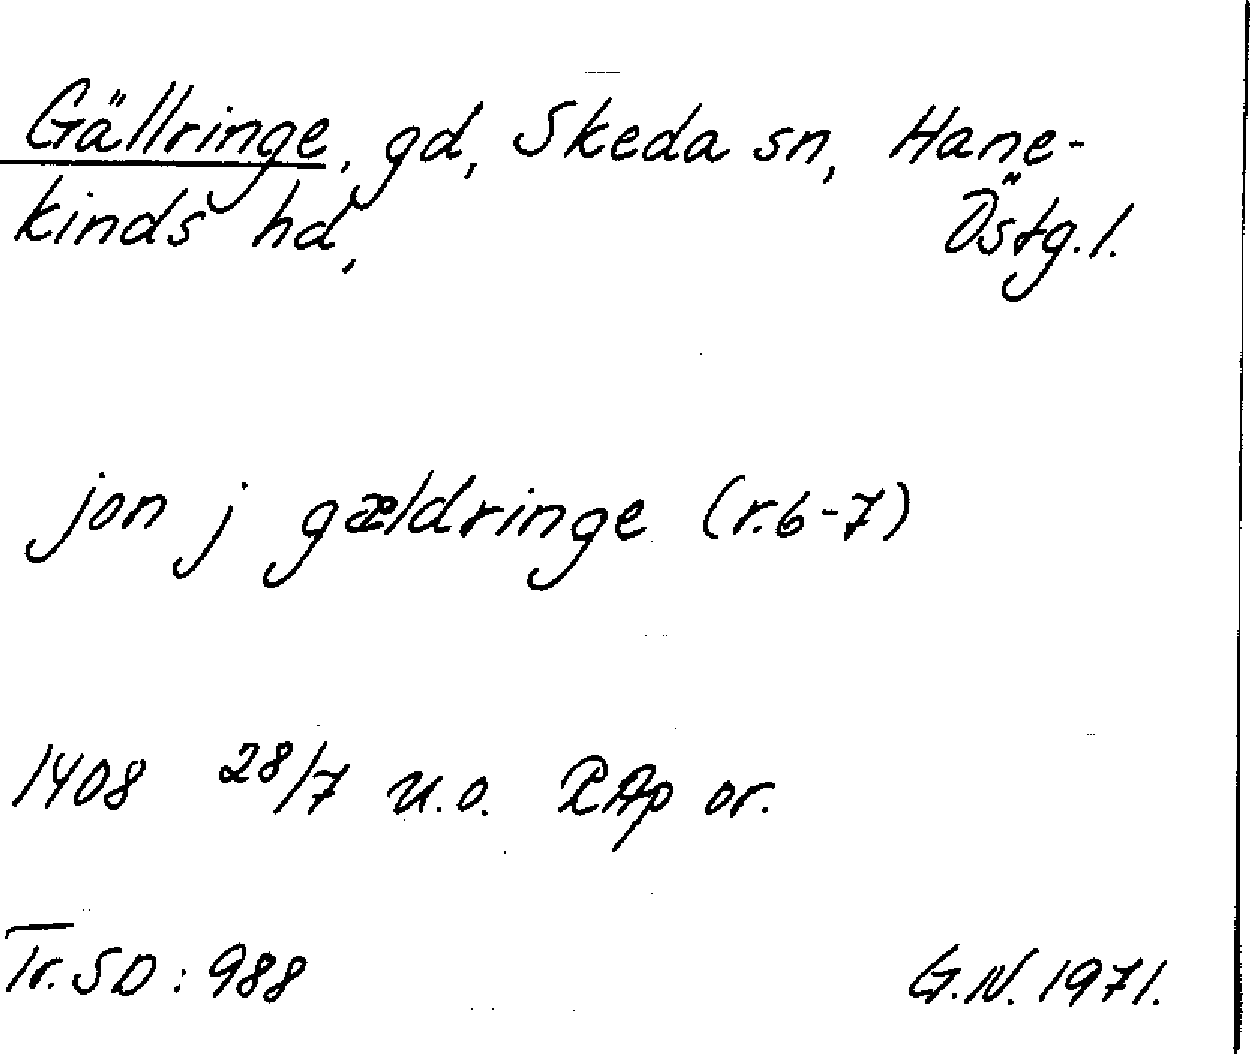 Gällringe, gd, Skeda sn, Hane-
kinds hd, Östg.l.
jon j gældringe (r.6-7)
1408 28/7 u.o. RAp or.
Tr. SD: 988 G.N. 1971.